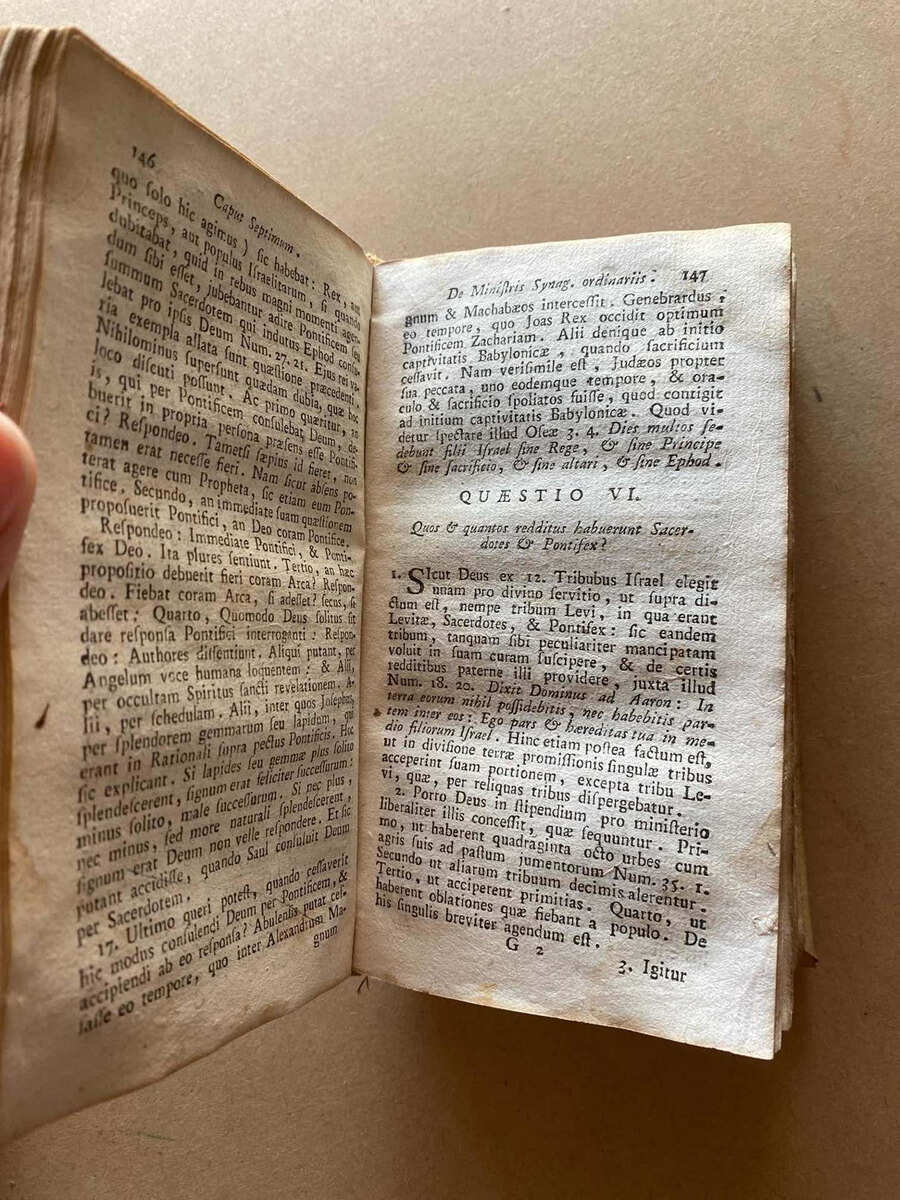 146
Caput Septimum.
quo ſolo hic agimus) ſic habebat: Rex, aut
Princeps, aut populus Iſraelitarum, ſi quando
dubitabat, quid in rebus magni momenti agen-
dum ſibi eſſet, jubebantur adire Pontificem ſeu
ſummum Sacerdotem qui indutus Ephod conſu-
lebat pro ipſis Deum Num. 27. 21. Ejus rei va-
ria exempla allata ſunt quæſtione præcedenti.
Nihilominus ſuperſunt quædam dubia, quæ hoc
loco diſcuti poſſunt. Ac primo quæritur, an
is, qui per Pontificem conſulebat Deum, de-
buerit in propria perſona præſens eſſe Pontifi-
ci? Reſpondeo. Tametſi ſæpius id fieret, non
tamen erat neceſſe fieri. Nam ſicut abſens po-
terat agere cum Propheta, ſic etiam eum Pon-
tifice. Secundo, an immediate ſuam quæſtionem
propoſuerit Pontifici, an Deo coram Pontifice.
Reſpondeo: Immediate Pontifici, & Ponti-
fex Deo. Ita plures ſentiunt. Tertio, an hæc
propoſitio debuerit fieri coram Arca? Reſpon-
deo. Fiebat coram Arca, ſi adeſſet? ſecus, ſi
abeſſet: Quarto, Quomodo Deus ſolitus ſit
dare reſponſa Pontifici interroganti: Reſpon-
deo: Authores diſſentiunt. Aliqui putant, per
Angelum voce humana loquentem: & Alii,
per occultam Spiritus ſancti revelationem. A-
lii, per ſchedulam. Alii, inter quos Joſephus,
per ſplendorem gemmarum ſeu lapidum, qui
erant in Rationali ſupra pectus Pontificis. Hoc
ſic explicant. Si lapides ſeu gemmæ plus ſolito
ſplendeſcerent, ſignum erat feliciter ſucceſſurum:
minus ſolito, male ſucceſſurum. Si nec plus,
nec minus, ſed more naturali ſplendeſcerent,
ſignum erat Deum non velle reſpondere. Et ſic
putant accidiſſe, quando Saul conſuluit Deum
per Sacerdotem.
17. Ultimo queri poteſt, quando ceſſaverit
hic modus conſulendi Deum per Pontificem, &
accipiendi ab eo reſponſa? Abulenſis putat ceſ-
ſaſſe eo tempore, quo inter Alexandrum Ma-
gnum
De Miniſtris Synag. ordinariis. 147
gnum & Machabæos interceſſit. Genebrardus,
eo tempore, quo Joas Rex occidit optimum
Pontificem Zachariam. Alii denique ab initio
captivitatis Babylonicæ, quando ſacrificium
ceſſavit. Nam veriſimile eſt, Judæos propter
ſua peccata, uno eodemque tempore, & ora-
culo & ſacrificio ſpoliatos fuiſſe, quod contigit
ad initium captivitatis Babylonicæ. Quod vi-
detur ſpectare illud Oſeæ 3. 4. Dies multos ſe-
debunt filii Iſrael ſine Rege, & ſine Principe
& ſine ſacrificio, & ſine altari, & ſine Ephod.
QUÆSTIO VI.
Quos & quantos redditus habuerunt Sacer-
dotes & Pontifex?
1. SIcut Deus ex 12. Tribubus Iſrael elegit
unam pro divino ſervitio, ut ſupra di-
ctum eſt, nempe tribum Levi, in qua erant
Levitæ, Sacerdotes, & Pontifex: ſic eandem
tribum, tanquam ſibi peculiariter mancipatam
voluit in ſuam curam ſuſcipere, & de certis
redditibus paterne illi providere, juxta illud
Num. 18. 20. Dixit Dominus ad Aaron: In
terra eorum nihil poſſidebitis, nec habebitis par-
tem inter eos: Ego pars & hæreditas tua in me-
dio filiorum Iſrael. Hinc etiam poſtea factum eſt,
ut in diviſione terræ promiſſionis ſingulæ tribus
acceperint ſuam portionem, excepta tribu Le-
vi, quæ, per reliquas tribus diſpergebatur.
2. Porro Deus in ſtipendium pro miniſterio
liberaliter illis conceſſit, quæ ſequuntur. Pri-
mo, ut haberent quadraginta octo urbes cum
agris ſuis ad paſtum jumentorum Num. 35. 1.
Secundo ut aliarum tribuum decimis alerentur.
Tertio, ut acciperent primitias. Quarto, ut
haberent oblationes quæ fiebant a populo. De
his ſingulis breviter agendum eſt.
G 2
3. Igitur